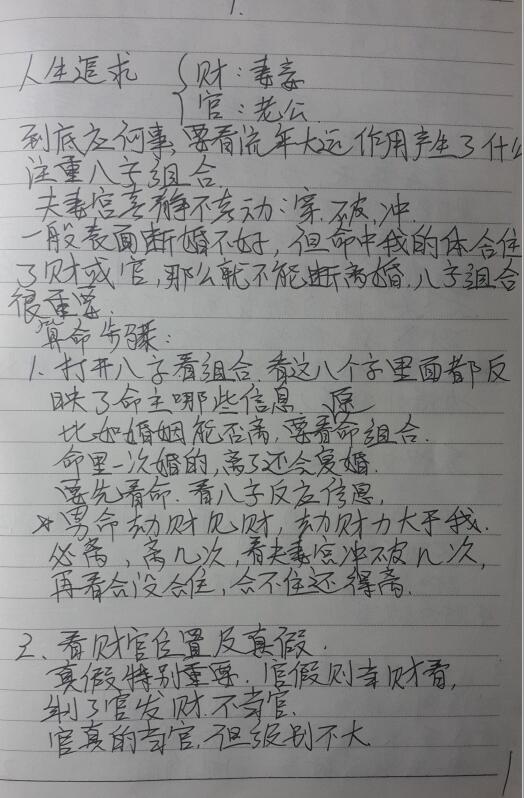 1.
人生追求 { 财：妻妾
官：老公
到底应何事，要看流年大运作用产生了什么
注重八字组合.
夫妻宫喜静不喜动：穿、破、冲.
一般表面断婚不好，但命中我的体合住
了财或官，那么就不能断离婚.八字组合
很重要.
算命步骤：
1、打开八字看组合.看这八个字里面都反
映了命主哪些信息 原
比如婚姻能否离，要看命组合.
命里一次婚的，离了还会复婚.
要先看命.看八字反应信息，
*男命劫财见财，劫财力大于我.
必离，离几次，看夫妻宫冲破几次，
再看合没合住，合不住还得离.
2、看财官位置及真假.
真假特别重要.官假则当财看，
制了官发财.不当官.
官真的当官.但级别不大